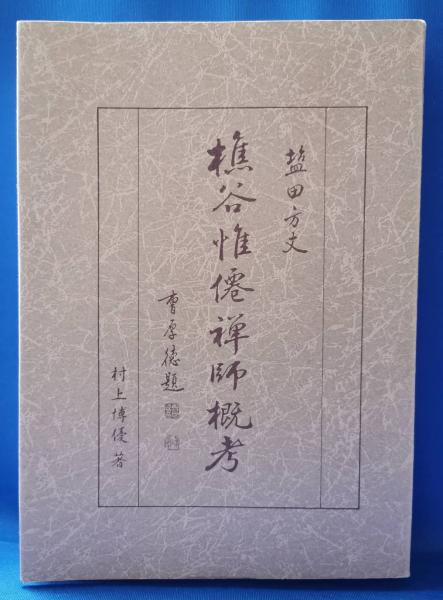 塩田方丈
樵谷惟僊禅師概考
曺厚徳題
村上博優著